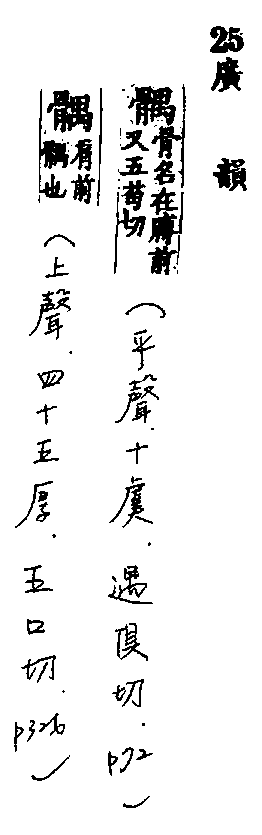 25廣韻
髃骨名在膊前又五苟切(平聲.十虞.遇俱切.p72)
髃肩前髃也(上聲.四十五厚.五口切.p326)